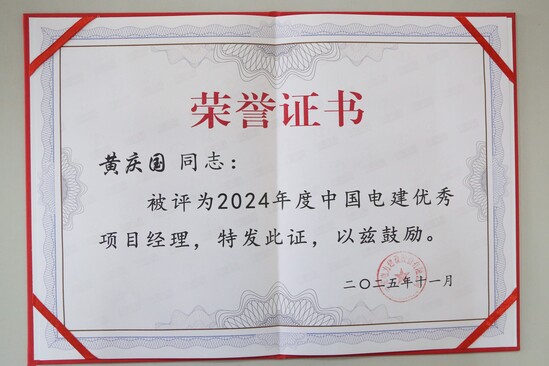 荣誉证书
黄庆国 同志：
被评为2024年度中国电建优秀
项目经理，特发此证，以兹鼓励。
二〇二五年十一月